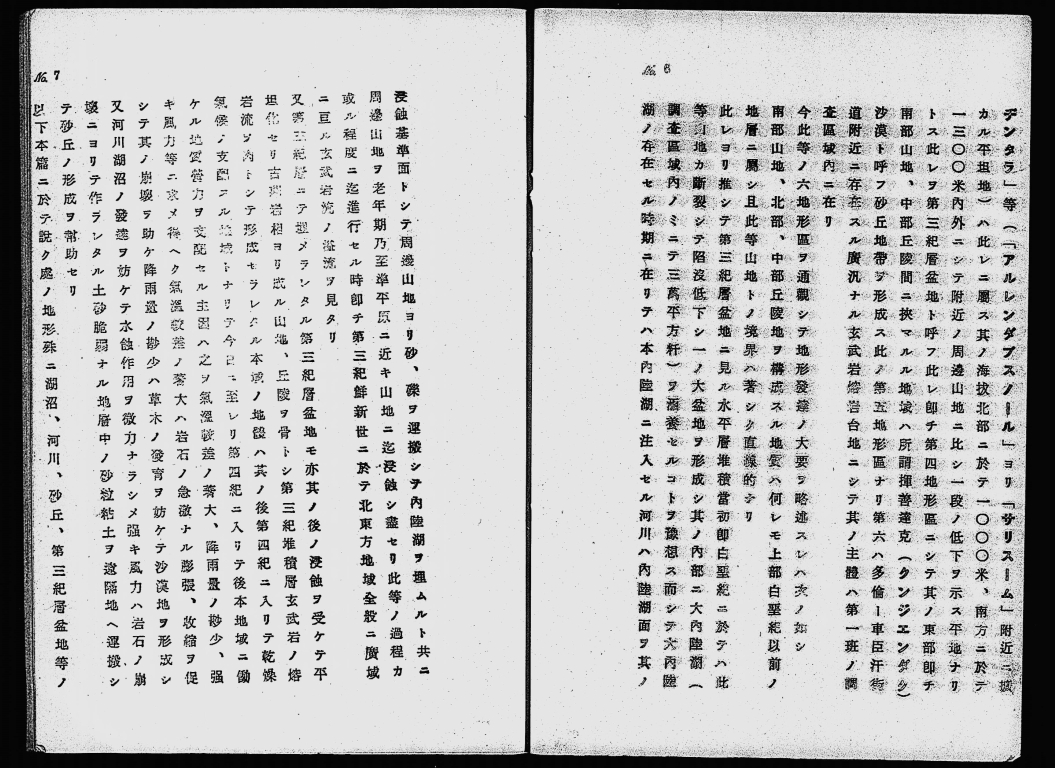 No. 6
デンタラ」等（「アルレンダブスノール」ヨリ「サリスーム」附近ニ域
カル平坦地）ハ此レニ屬ス其ノ海拔北部ニ於テ一〇〇〇米、南方ニ於テ
一三〇〇米內外ニシテ附近ノ周邊山地ニ比シ一段ノ低下ヲ示ス平地ナリ
トス此レヲ第三紀層盆地ト呼フ此レ卽チ第四地形區ニシテ其ノ東部卽チ
南部山地、中部丘陵間ニ挾マルル地域ハ所謂揮善達克（クンジエンダク）
沙漠ト呼フ砂丘地帶ヲ形成ス此ノ第五地形區ナリ第六ハ多倫ー車臣汗街
道附近ニ存在スル廣汎ナル玄武岩熔岩台地ニシテ其ノ主體ハ第一班ノ調
査區域內ニ在リ
今此等ノ六地形區ヲ通觀シテ地形發達ノ大要ヲ略述スレハ次ノ如シ
南部山地、北部、中部丘陵地ヲ構成スル地質ハ何レモ上部白堊紀以前ノ
地層ニ屬シ且此等山地トノ境界ハ著シク直線的ナリ
此レヨリ推シテ第三紀層盆地ニ見ル水平層堆積當初卽白堊紀ニ於テハ此
等山地カ斷裂シテ陷沒低下シ一ノ大盆地ヲ形成シ其ノ內部ニ大內陸湖（
調査區域內ノミニテ三萬平方粁）ヲ涵養セルコトヲ豫想ス而シテ大內陸
湖ノ存在セル時期ニ在リテハ本內陸湖ニ注入セル河川ハ內陸湖面ヲ其ノ
No. 7
浸蝕基準面トシテ周邊山地ヨリ砂、礫ヲ運搬シテ內陸湖ヲ埋ムルト共ニ
周邊山地ヲ老年期乃至準平原ニ近キ山地ニ迄浸蝕シ盡セリ此等ノ過程カ
或ル程度ニ迄進行セル時卽チ第三紀鮮新世ニ於テ北東方地域全般ニ廣域
ニ亘ル玄武岩流ノ溢流ヲ見タリ
又第三紀層ニテ埋メラレタル第三紀層盆地モ亦其ノ後ノ浸蝕ヲ受ケテ平
坦化セリ古期岩相ヨリ成ル山地、丘陵ヲ骨トシ第三紀堆積層玄武岩ノ熔
岩流ヲ肉トシテ形成セラレタル本域ノ地盤ハ其ノ後第四紀ニ入リテ乾燥
氣候ノ支配スル地域トナリテ今日ニ至レリ第四紀ニ入リテ後本地域ニ働
ケル地質營力ヲ支配セル主因ハ之ヲ氣溫較差ノ著大、降雨量ノ尠少、强
キ風力等ニ求メ得ヘク氣溫較差ノ著大ハ岩石ノ急激ナル膨張、收縮ヲ促
シテ其ノ崩壞ヲ助ケ降雨量ノ尠少ハ草木ノ發育ヲ妨ケテ沙漠地ヲ形成シ
又河川湖沼ノ發達ヲ妨ケテ水蝕作用ヲ微力ナラシメ强キ風力ハ岩石ノ崩
壞ニヨリテ作ラレタル土砂脆弱ナル地層中ノ砂粒粘土ヲ遠隔地ヘ運搬シ
テ砂丘ノ形成ヲ幇助セリ
以下本篇ニ於テ說ク處ノ地形殊ニ湖沼、河川、砂丘、第三紀層盆地等ノ